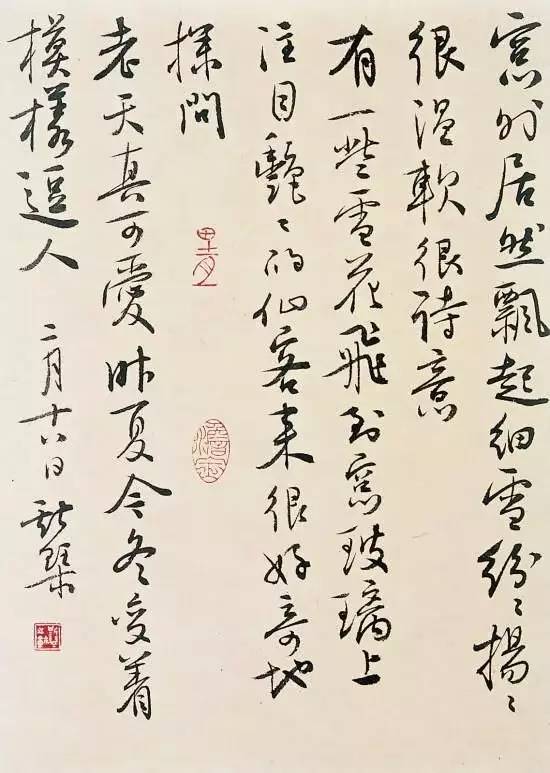 窓外居然飄起細雪紛〻揚〻
很溫軟很詩意
有一些雪花飛到窓玻璃上
注目艷〻的仙客来很好奇地
探問
老天真可愛昨夏今冬变着
模樣逗人 二月十八日